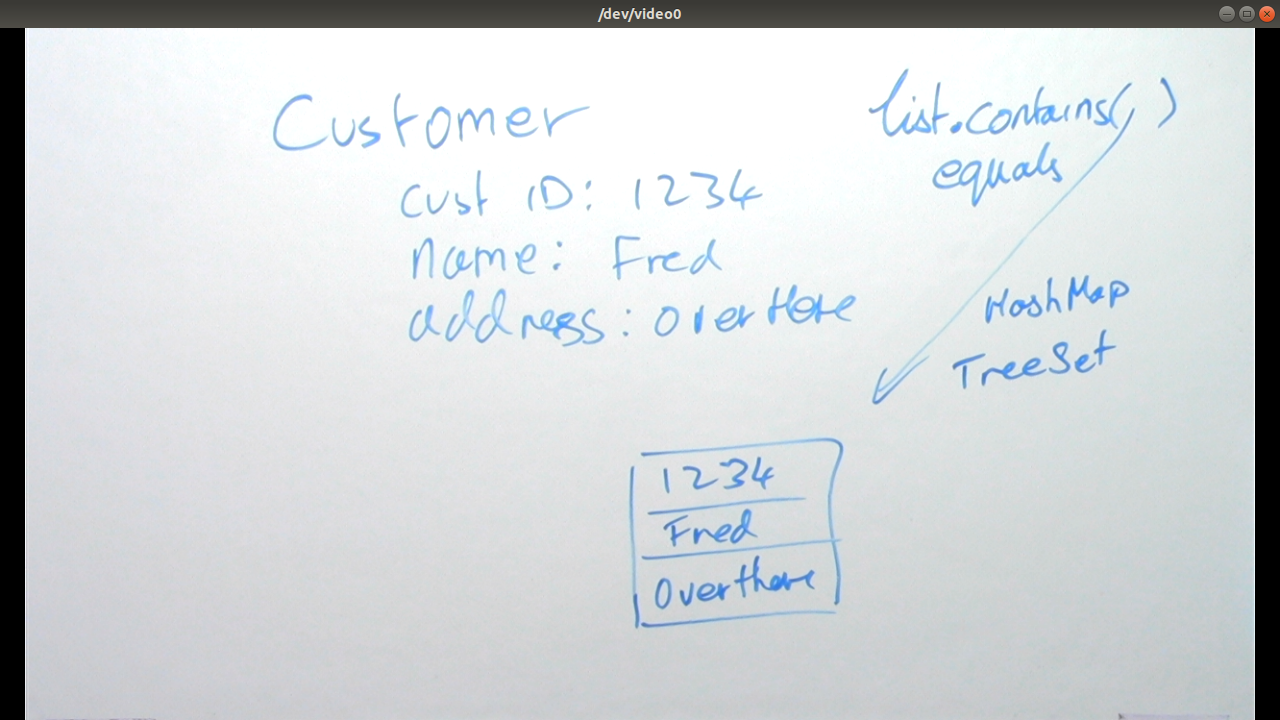 /dev/video0
Customer
cust ID: 1234
name: Fred
address: OverHere
list.contains(, )
equals
HashMap
TreeSet
1234
Fred
Overthere